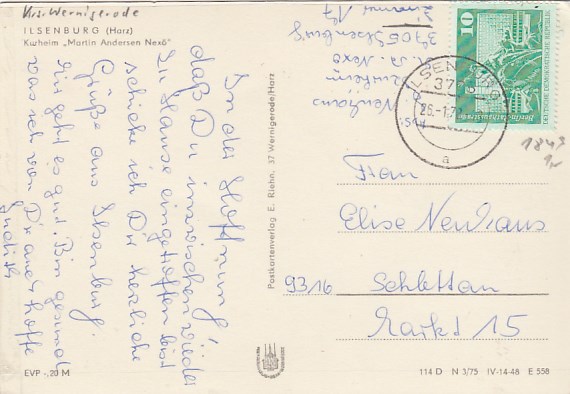 Krs. Wernigerode
ILSENBURG (Harz)
Kurheim „Martin Andersen Nexö"
In der Hoffnung,
daß Du inzwischen wieder
zu Hause eingetroffen bist
schicke ich Dir herzliche
Grüße aus Ilsenburg.
Mir geht es gut. Bin gesund
was ich von Dir auch hoffe
Neuhaus
Kurheim
M. A. Nexö
3705 Ilsenburg
Zimmer
Postkartenverlag E. Riehn, 37 Wernigerode/Harz
10
DEUTSCHE DEMOKRATISCHE REPUBLIK
ILSENBURG
3705
a
1843
Frau
Elise Neuhaus
9316 Schlettau
Markt 15
EVP -,20 M
114 D N 3/75 IV-14-48 E 558